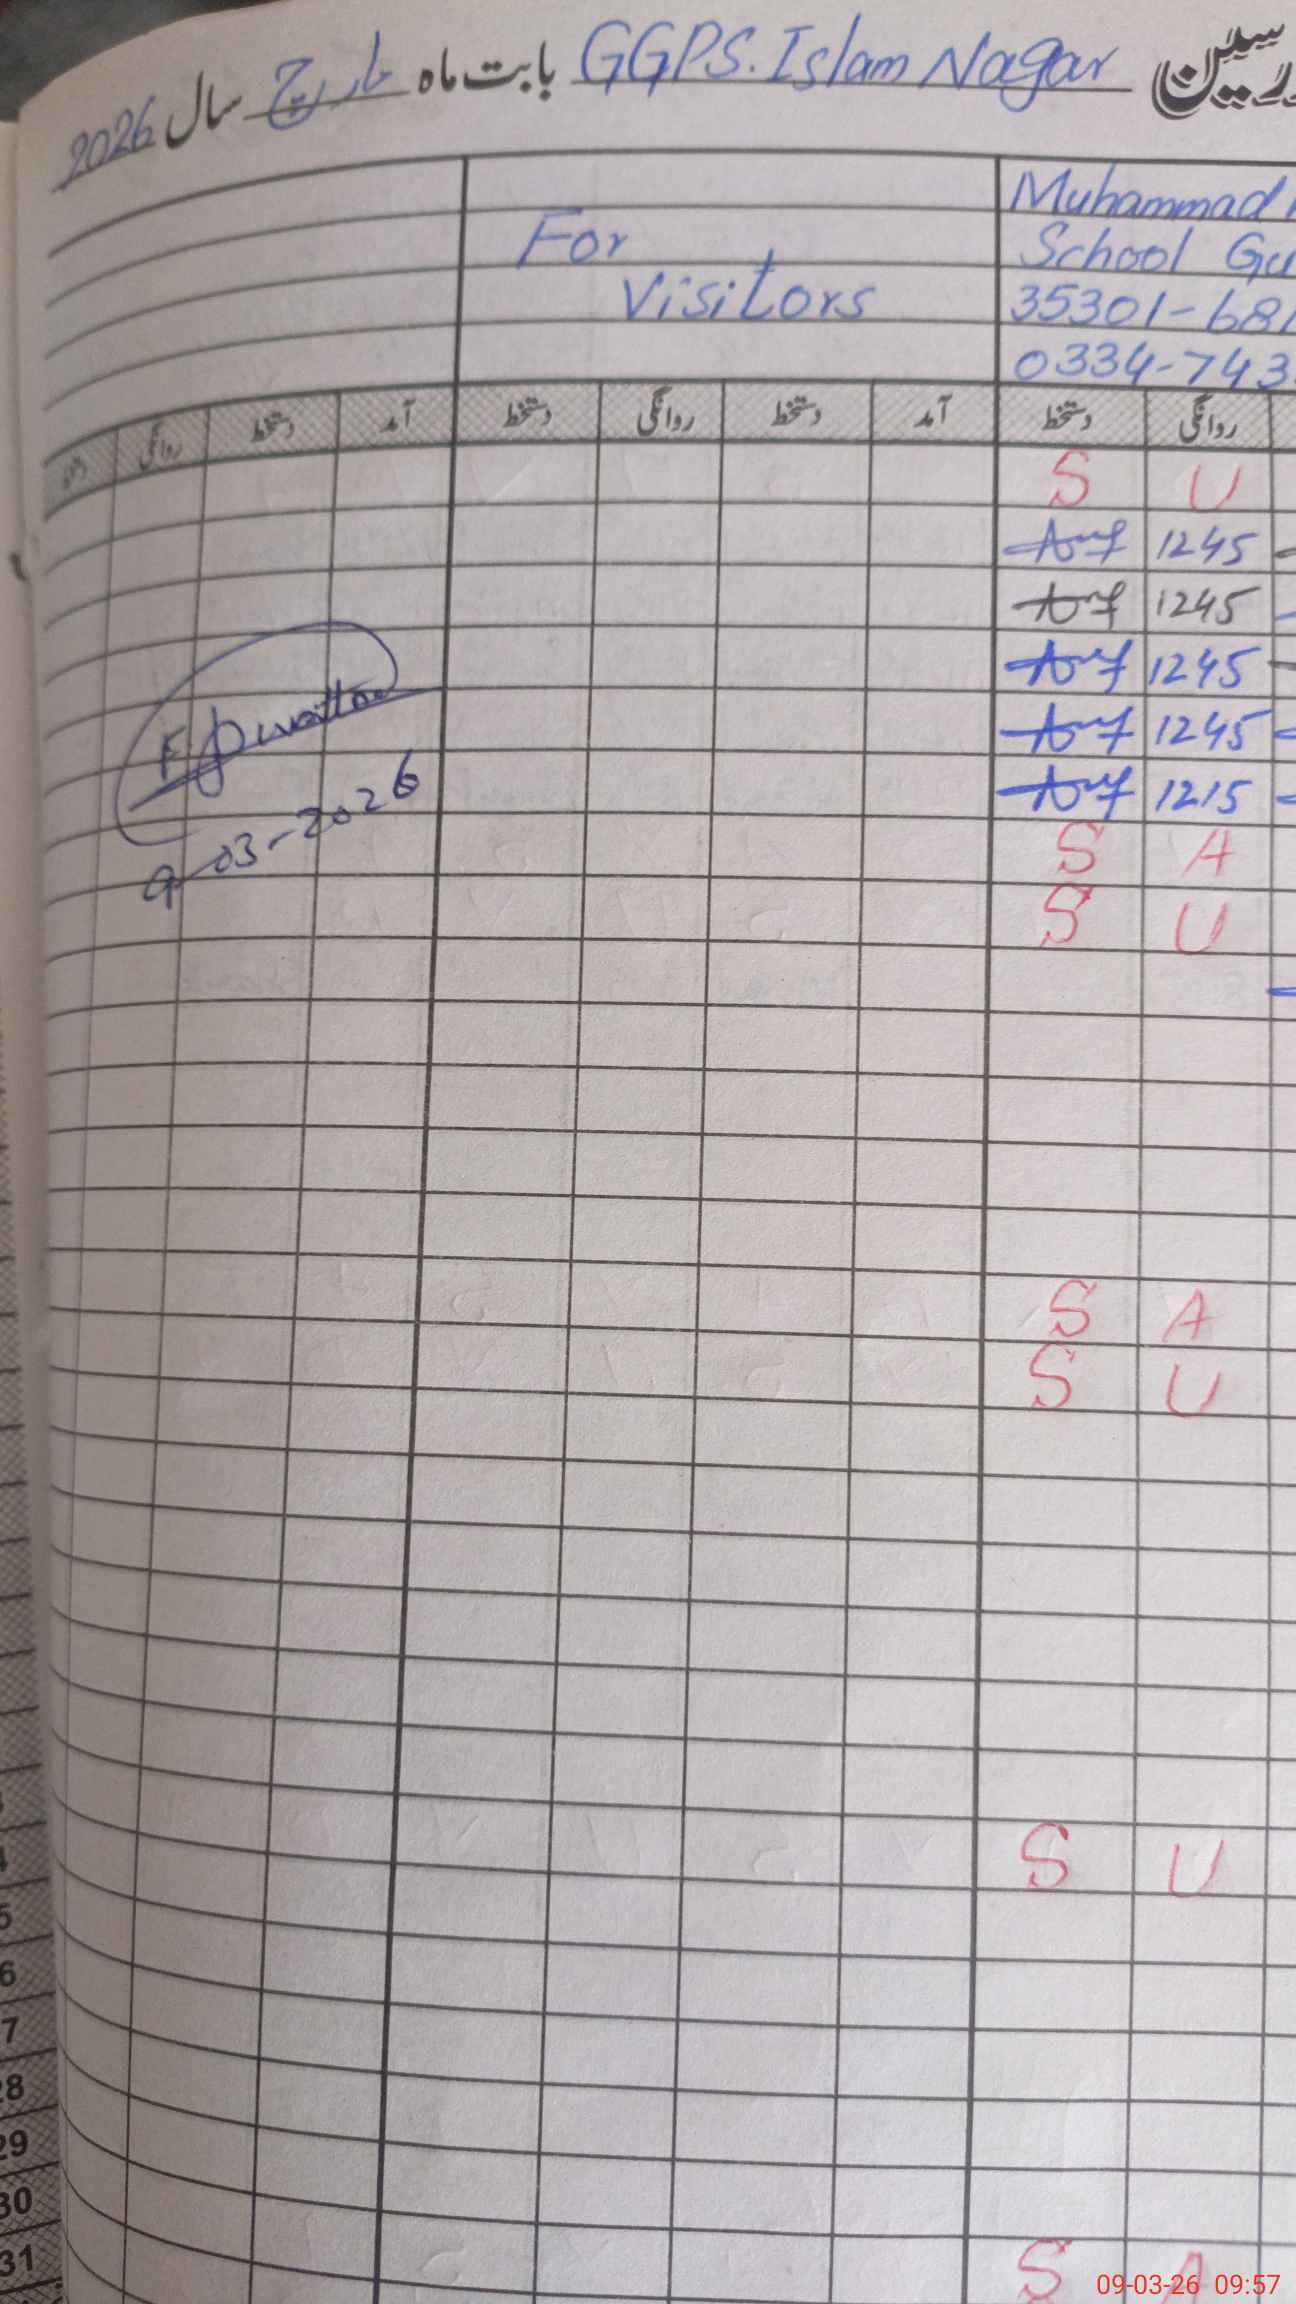 رسین GGPS. Islam Nagar بابت ماہ مارچ سال 2026
For
Visitors
Muhammad
School Gu
35301-681
0334-743
دستخط روانگی دستخط آمد دستخط روانگی دستخط آمد دستخط روانگی
S U
1245
1245
1245
1245
1215
S A
S U
9-03-2026
S A
S U
S U
S A
5
6
7
28
29
30
31
09-03-26 09:57